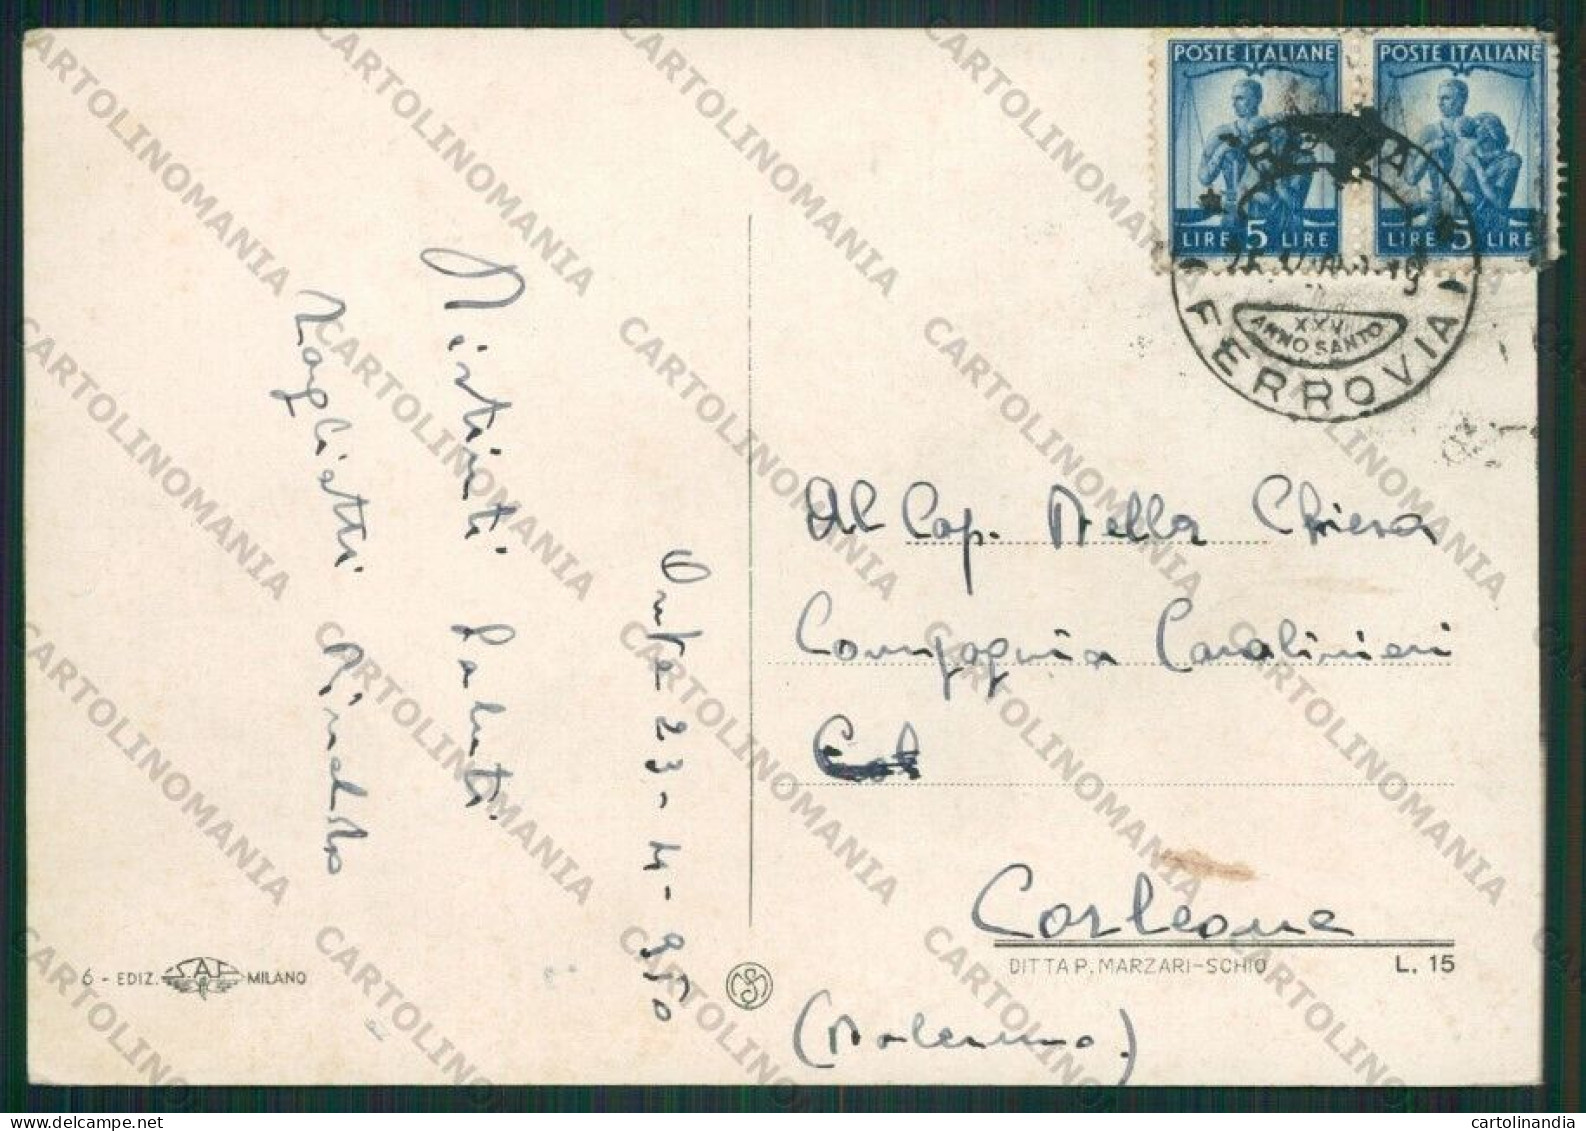 POSTE ITALIANE
LIRE 5 LIRE
POSTE ITALIANE
LIRE 5 LIRE
XXV
ANNO SANTO
FERROVIA
Al Cap. Della Chiesa
Compagnia Carabinieri
Corleone
(Palermo)
Distinti Saluti
Rinaldo
23-4-950
6 - EDIZ. S.A.F. MILANO
DITTA P. MARZARI-SCHIO
L. 15
CARTOLINOMANIA
cartolinandia